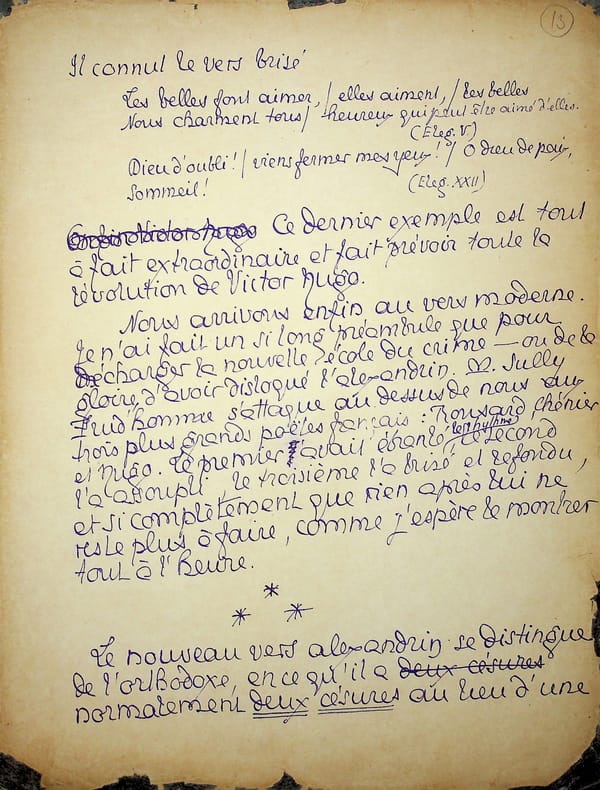 13
Il connut le vers brisé
Les belles font aimer, / elles aiment, / les belles
Nous charment tous / heureux qui peut être aimé d'elles.
(Eleg. V)
Dieu d'oubli ! / viens fermer mes yeux ! / O dieu de paix,
Sommeil !
(Eleg. XXII)
Enfin Victor Hugo Ce dernier exemple est tout
à fait extraordinaire et fait prévoir toute la
révolution de Victor Hugo.
Nous arrivons enfin au vers moderne.
Je n'ai fait un si long préambule que pour
décharger la nouvelle école du crime — ou de la
gloire, d'avoir disloqué l'alexandrin. M. Sully
Prud'homme s'attaque au dessus de nous aux
trois plus grands poètes français : Ronsard Chénier
et Hugo. Le premier avait ébranlé le rythme le second
l'a assoupli le troisième l'a brisé et refondu,
et si complètement que rien après lui ne
reste plus à faire, comme j'espère le montrer
tout à l'heure.
*
* *
Le nouveau vers alexandrin se distingue
de l'orthodoxe, en ce qu'il a deux césures
normalement deux césures au lieu d'une